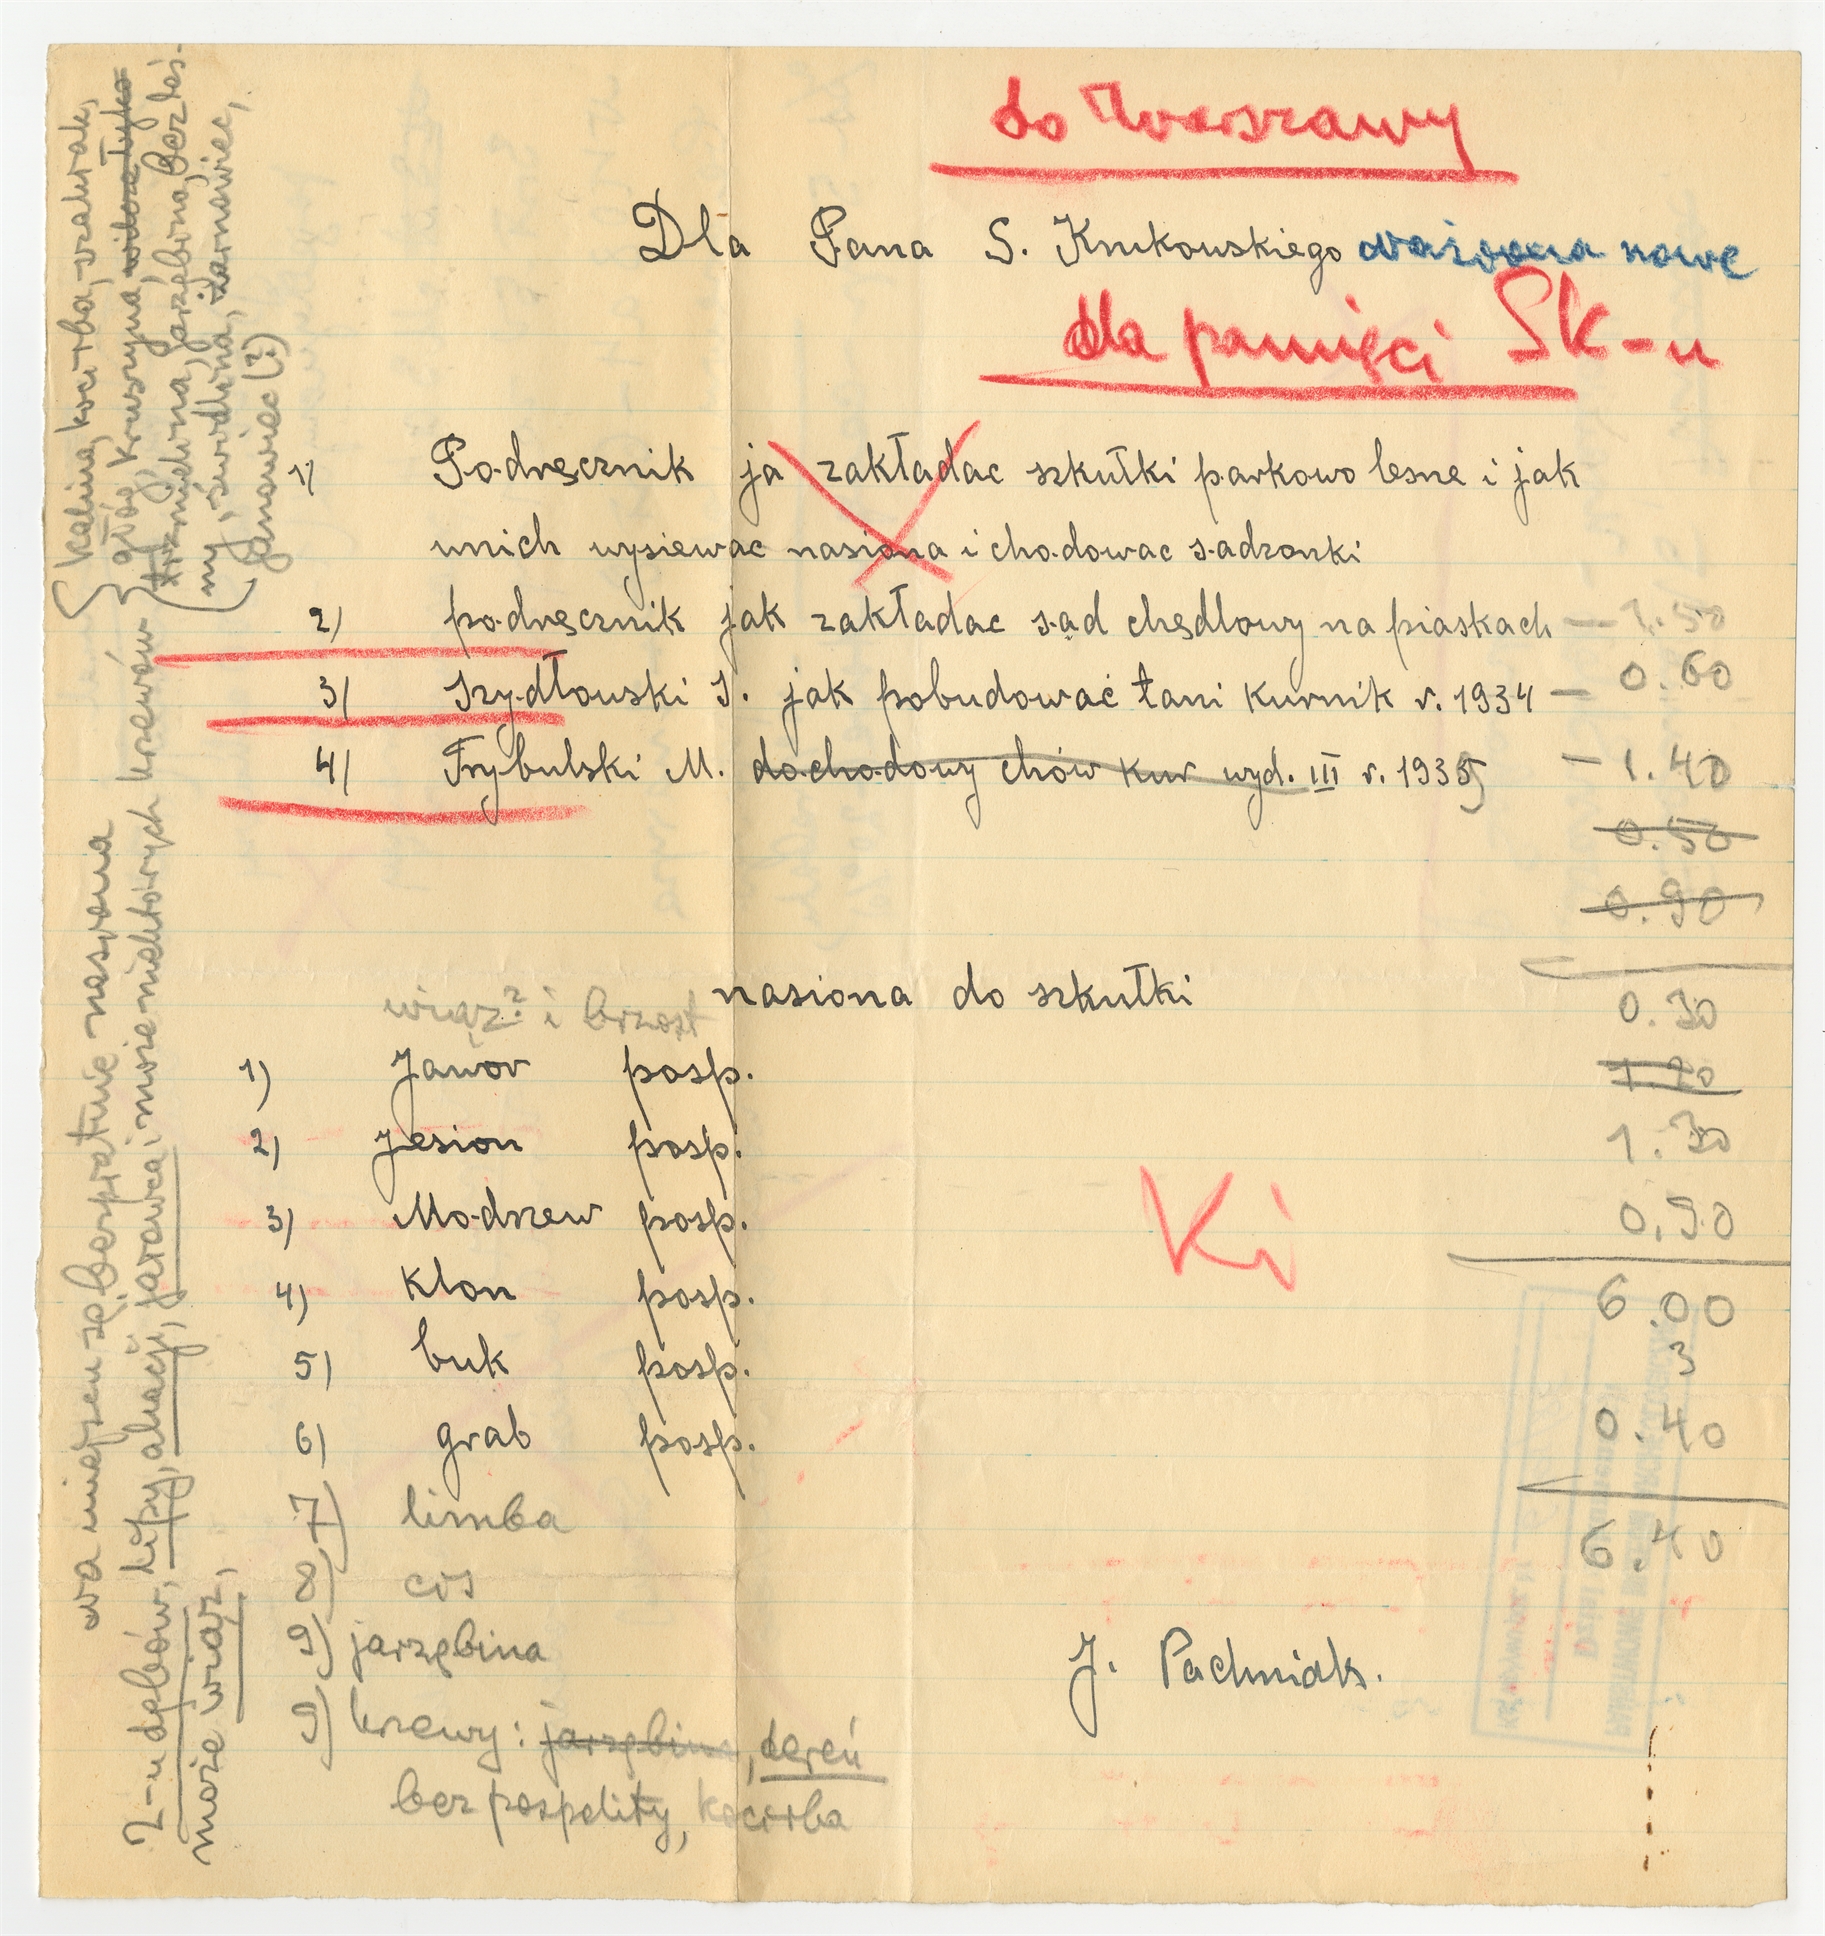 do Warszawy
Dla Pana S. Krukowskiego ważne nowe
dla pamięci SK-u
1) Podręcznik ja zakładac szkułki parkowo lesne i jak
wnich wysiewac nasiona i chodowac sadzonki
2) podręcznik jak zakładac sad chędlowy na piaskach — 1.50
3) Szydłowski S. jak pobudować tani kurnik r. 1934 — 0.60
4) Trybulski M. dochodowy chów kur wyd. III r. 1935 — 1.40
0.50
0.90
nasiona do szkułki
0.30
wiąz? i brzost
1) Jawor posp.
1.30
2) Jesion posp.
0.90
3) Modrzew posp.
6.00
4) Klon posp.
3
5) buk posp.
0.40
6) grab posp.
6.40
7) limba
8) cis
9) jarzębina
9) krzewy: jarzębina, dereń
bez pospolity, kocirba
Ki
J. Pachniak.
na miejscu są bezpłatnie nasiona
2-u dębów, lipy, akacji, jarzabca i może niektórych krzewów
może wiąz,
kalina, kocirba, szakłak,
głóg, kruszyna,
trzmielina, jarzębina, bez leś-
ny, świdwina, żarnowiec,
Janowiec (?)